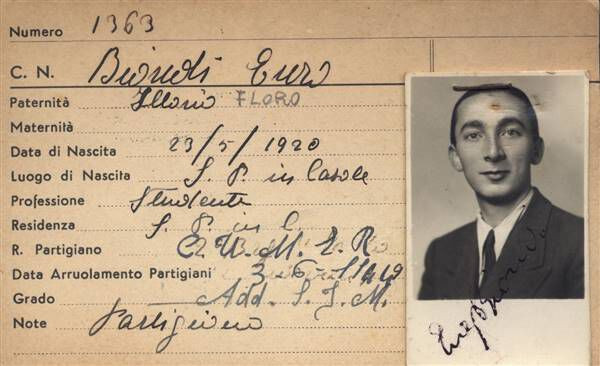 Numero 1363
C. N. Biondi Enzo
Paternità FLORO
Maternità
Data di Nascita 23/5/1920
Luogo di Nascita S. P. in Casale
Professione Studente
Residenza S. P. in C
R. Partigiano C. U. M. E. R.
Data Arruolamento Partigiani 3-6-
Grado Add. S. I. M.
Note Partigiano